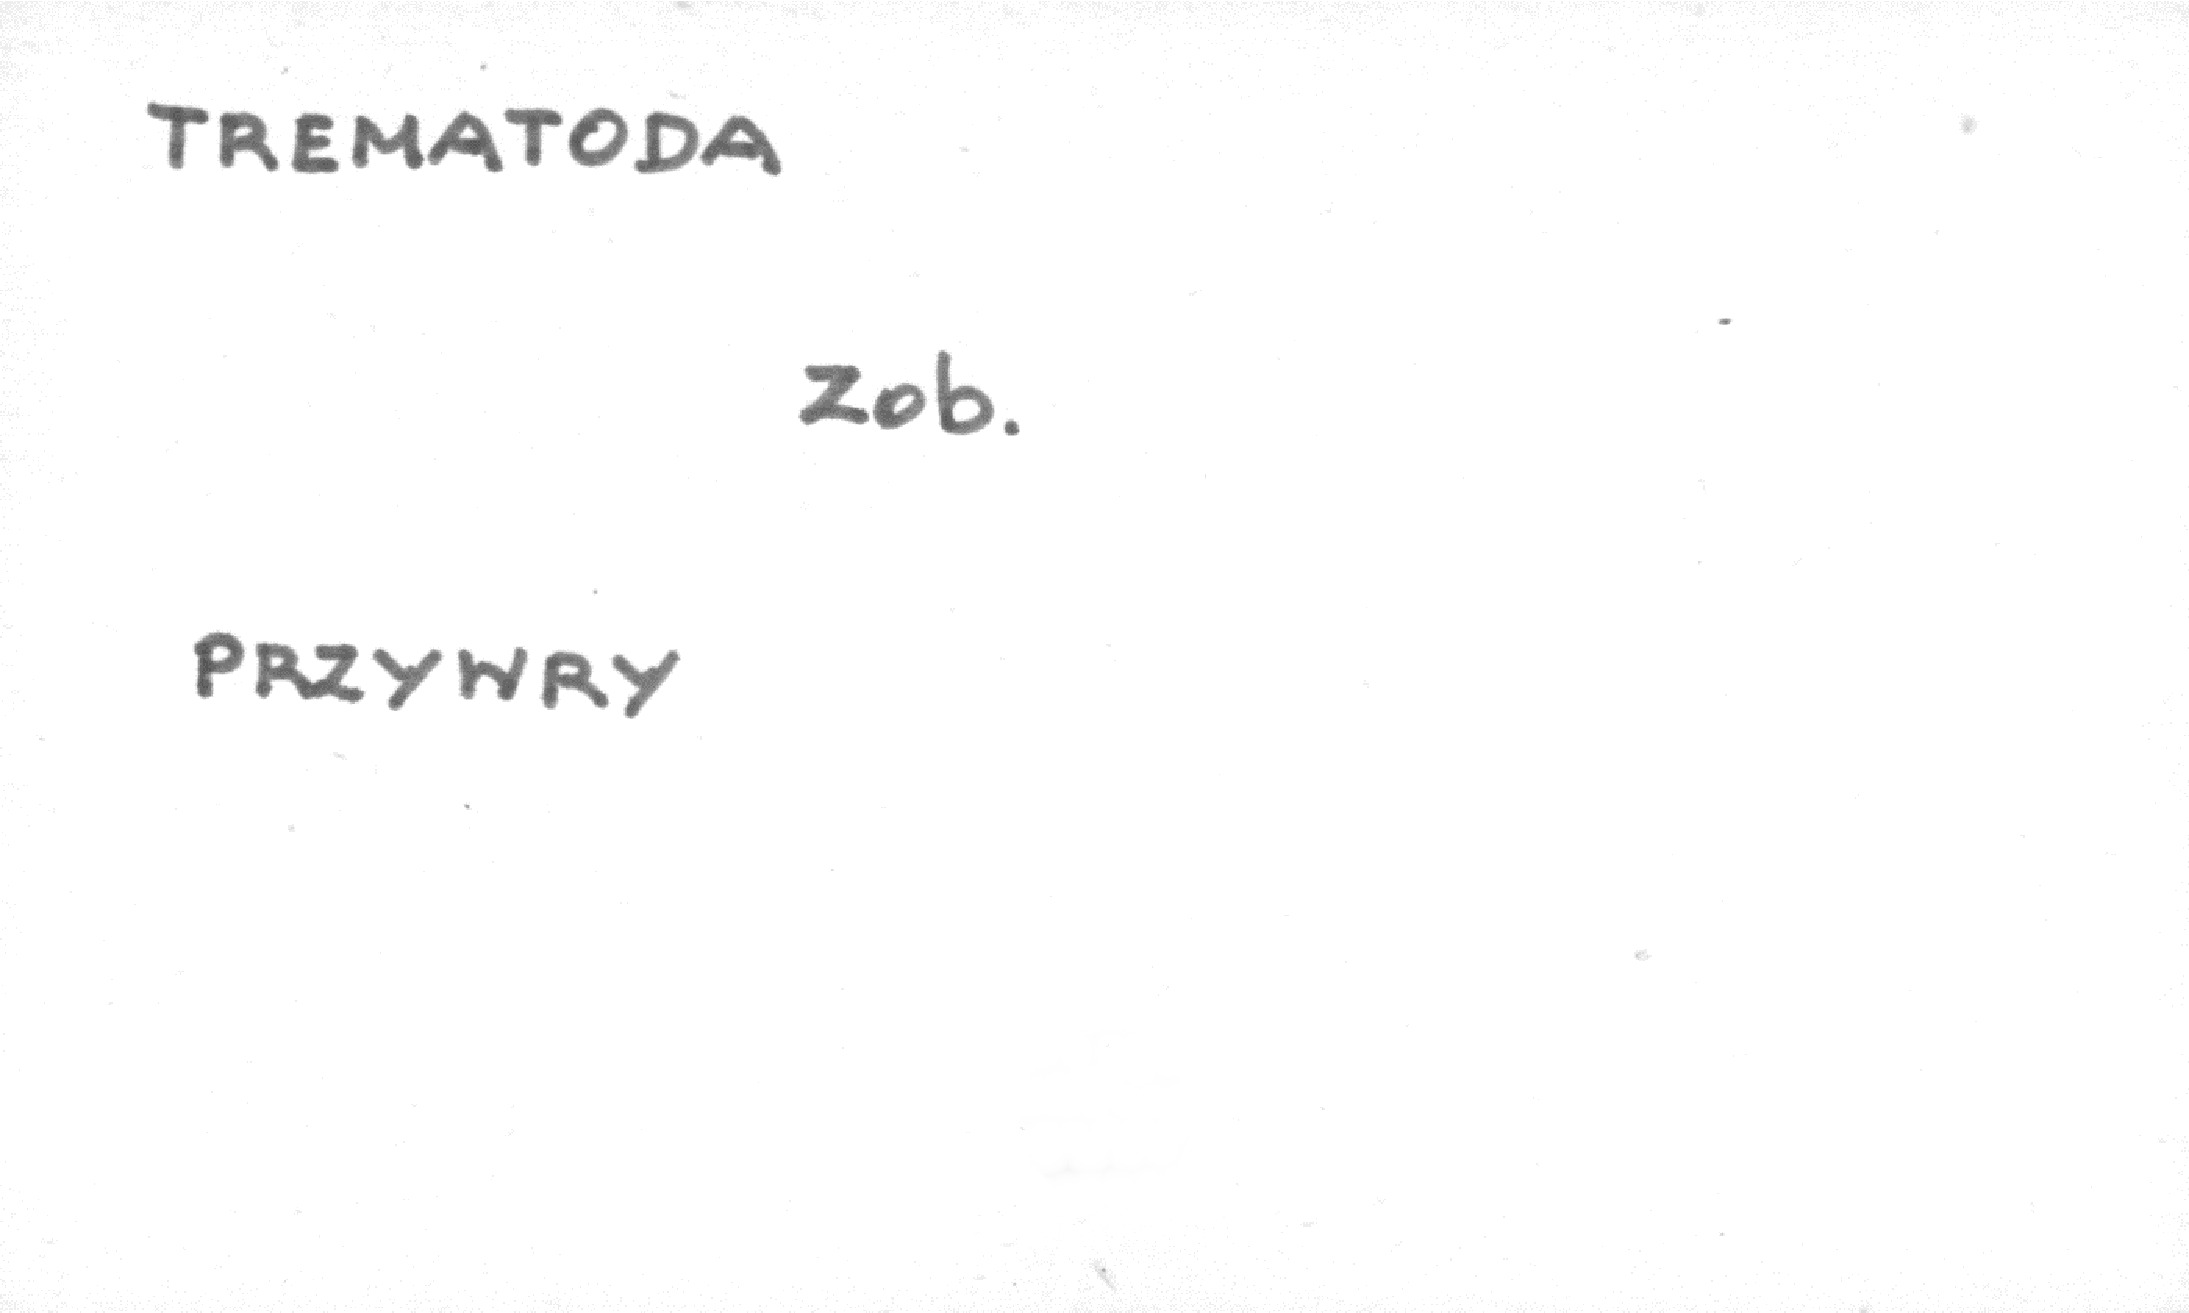 TREMATODA
Zob.
PRZYWRY